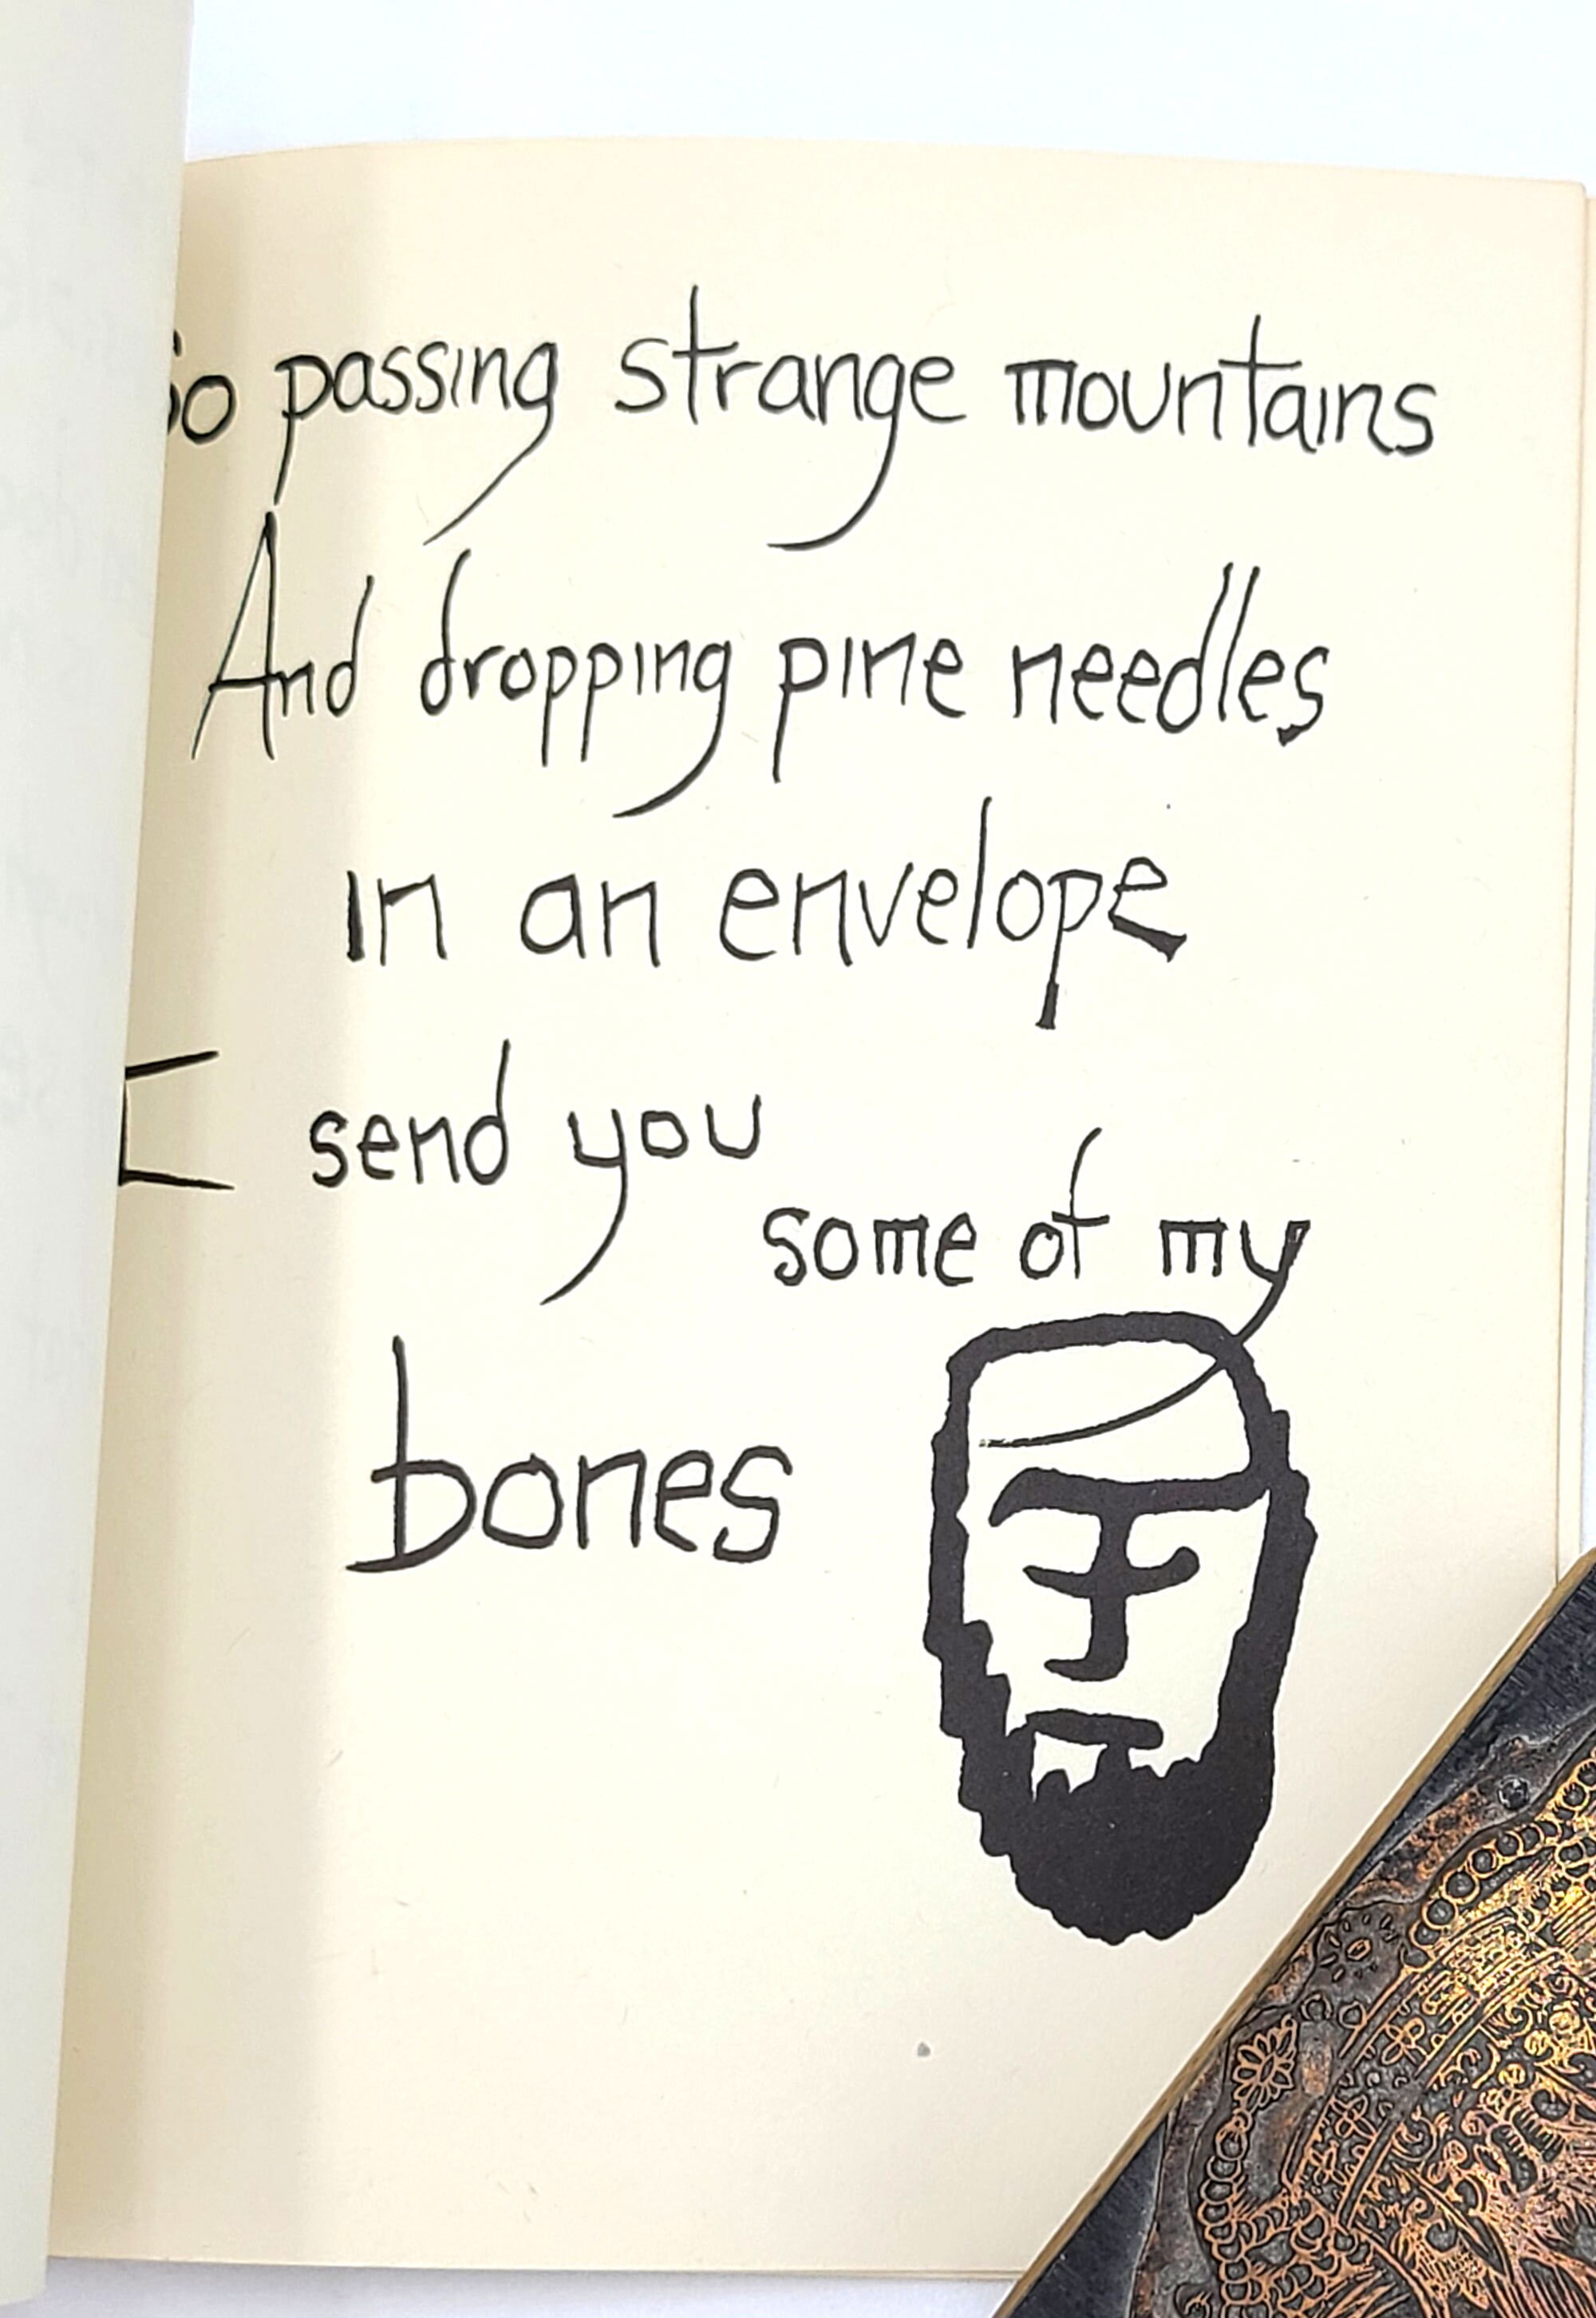 So passing strange mountains
And dropping pine needles
in an envelope
I send you
some of my
bones